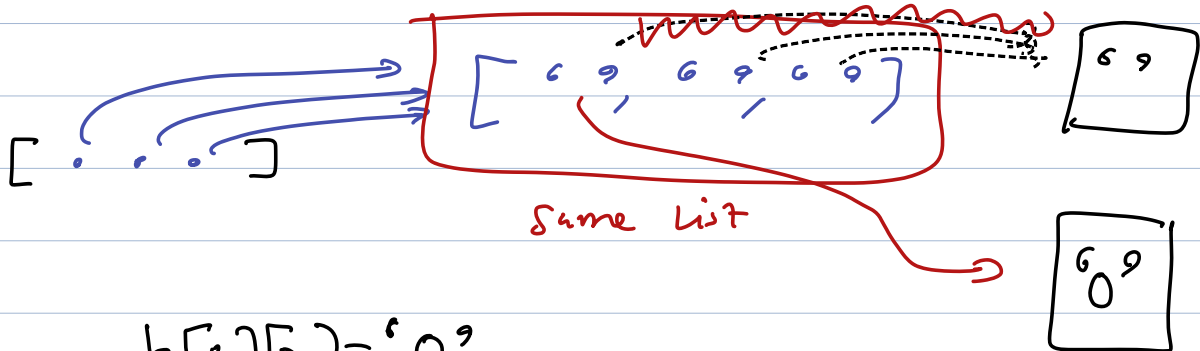 [ ' ' , ' ' , ' ' ]
' '
[ . . . ]
Same List
' 0 '